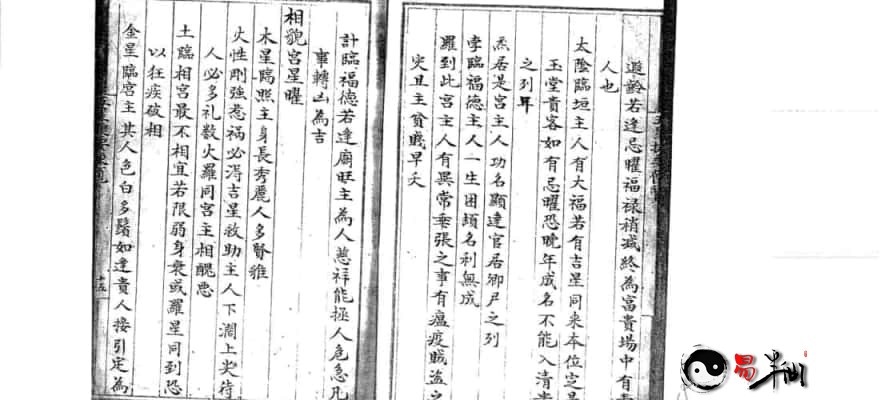 遐齡若逢忌曜福祿稍减終為富貴場中有
人也
太陰臨垣主人有大福若有吉星同来本位定是
玉堂貴客如有忌曜恐晚年成名不能入清
之列
炁居是宮主人功名顯達官居卿尹之列
孛臨福德主人一生困頓名利無成
羅到此宮主人有異常乖張之事有瘟疫賊盗之
灾且主貧賤早夭
計臨福德若逢廟旺主為人慈祥能拯人危急凡
事轉凶為吉
相貌宮星曜
木星臨照主身長秀麗人多賢雅
火性剛強惹禍必得吉星救助主人下濶上尖待
人必多礼数火羅同宮主相醜惡
土臨相宮最不相宜若限弱身衰或羅星同到恐
以狂疾破相
金星臨宮主其人色白多鬚如逢貴人接引定為
十五
易半仙